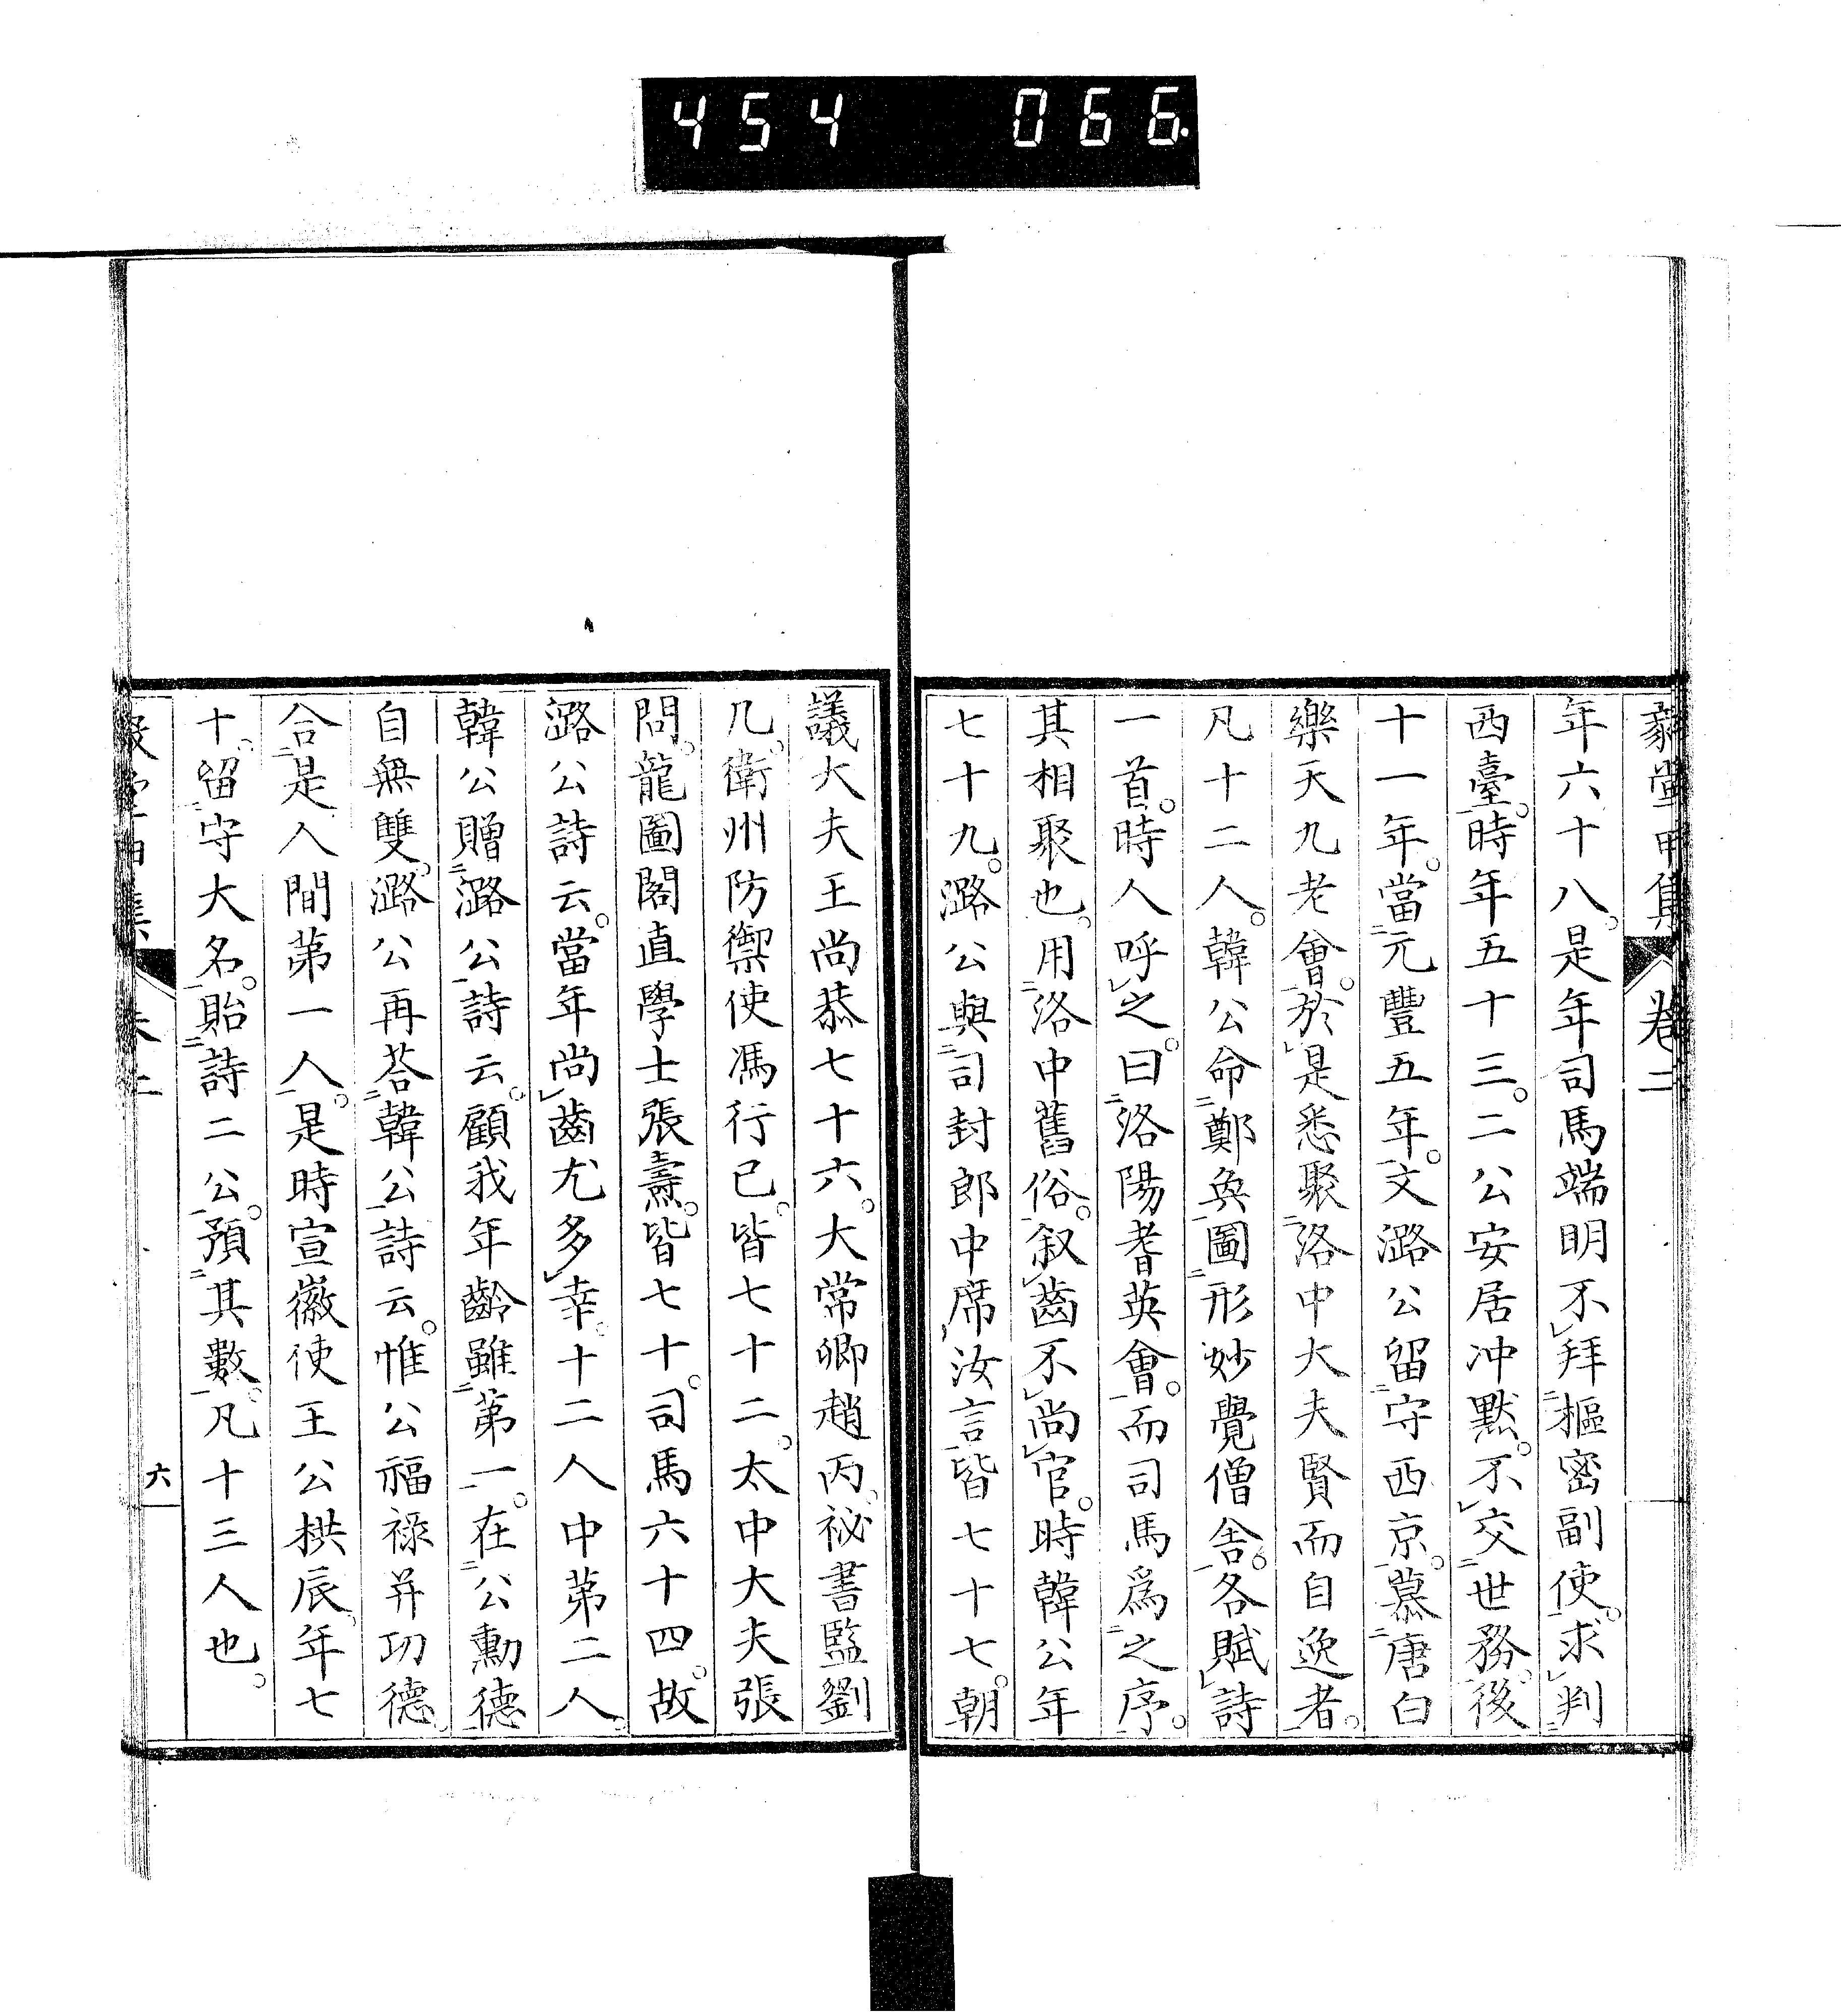 454 066
毅堂甲集 卷二
年六十八。是年司馬端明不拜樞密副使。求判
西臺。時年五十三。二公安居冲默。不交世務。後
十一年。當元豐五年。文潞公留守西京。慕唐白
樂天九老會。於是悉聚洛中大夫賢而自逸者。
凡十二人。韓公命鄭奐圖形妙覺僧舍。各賦詩
一首。時人呼之曰。洛陽耆英會。而司馬爲之序。
其相聚也。用洛中舊俗。叙齒不尚官。時韓公年
七十九。潞公與司封郎中席汝言皆七十七。朝
議大夫王尚恭七十六。大常卿趙丙。祕書監劉
几。衛州防禦使馮行已。皆七十二。太中大夫張
問。龍圖閣直學士張燾。皆七十。司馬六十四。故
潞公詩云。當年尚齒尤多幸。十二人中第二人。
韓公贈潞公詩云。顧我年齡雖第一。在公勳德
自無雙。潞公再荅韓公詩云。惟公福祿并功德。
合是人間第一人。是時宣徽使王公拱辰。年七
十。留守大名。貽詩二公。預其數。凡十三人也。
六